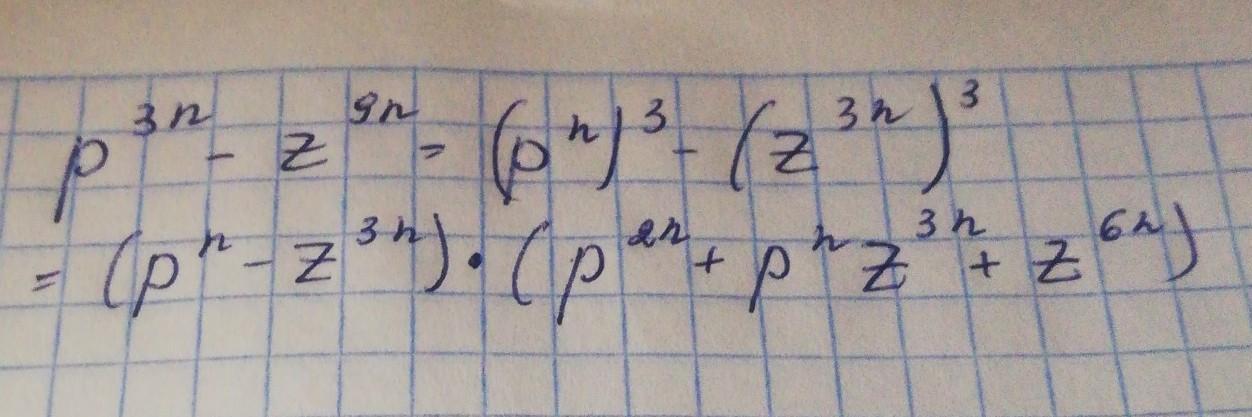 p^{3n} - z^{9n} = (p^n)^3 - (z^{3n})^3
= (p^n - z^{3n}) · (p^{2n} + p^n z^{3n} + z^{6n})